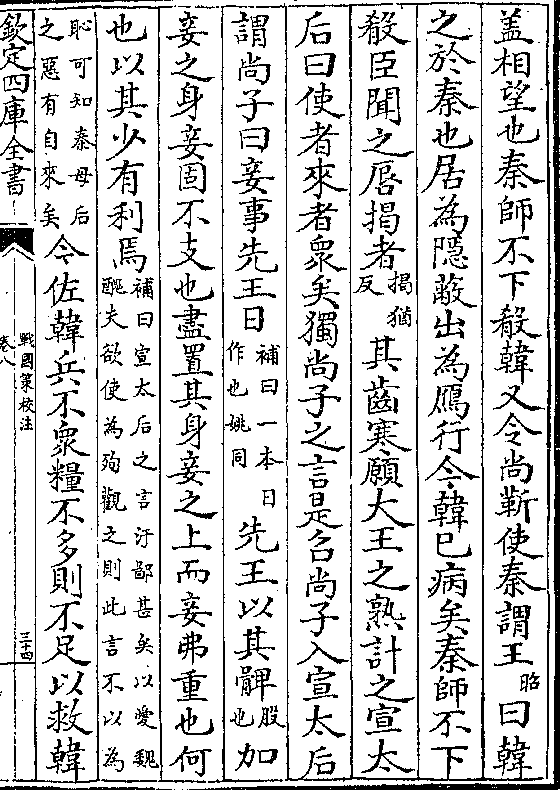 盖相望也秦師不下殽韓又令尚靳使秦謂王昭曰韓
之於秦也居為隱蔽出為鴈行今韓已病矣秦師不下
殽臣聞之唇揭者揭猶反其齒寒願大王之熟計之宣太
后曰使者來者衆矣獨尚子之言是召尚子入宣太后
謂尚子曰妾事先王日補曰一本日作也姚同先王以其髀股也加
妾之身妾固不支也盡置其身妾之上而妾弗重也何
也以其少有利焉補曰宣太后之言汙鄙甚矣以愛魏醜夫欲使為殉觀之則此言不以為
恥可知秦母后之惡有自來矣今佐韓兵不衆糧不多則不足以救韓
欽定四庫全書
戰國策校注
卷八
三十四